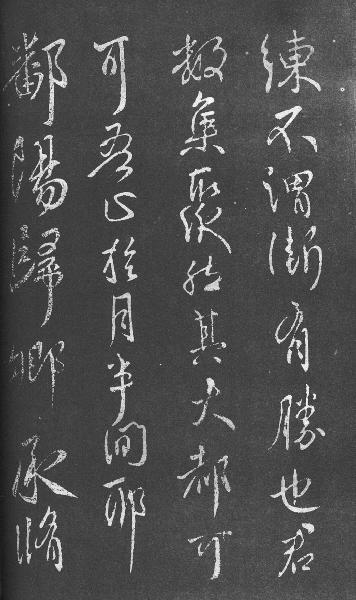 練不謂漸有勝也君
數集聚然其大都可
可吾於月半間耶
鄱陽歸鄉承脩